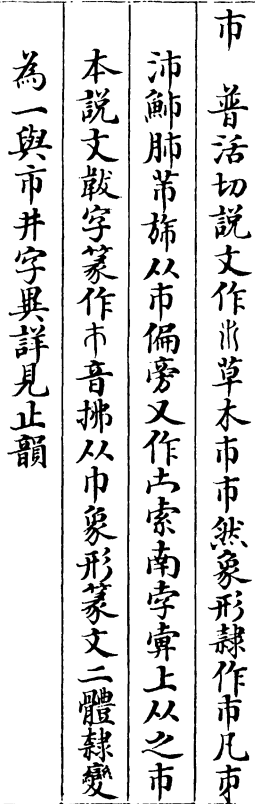 巿 普活切說文作𣎵草木巿巿然象形隸作巿凡朿
沛鮪肺芾旆从巿偏旁又作𠀎索南孛𢍏上从之巿
本說文韍字篆作巿音拂从巾象形篆文二體隸變
為一與市井字異詳見止韻